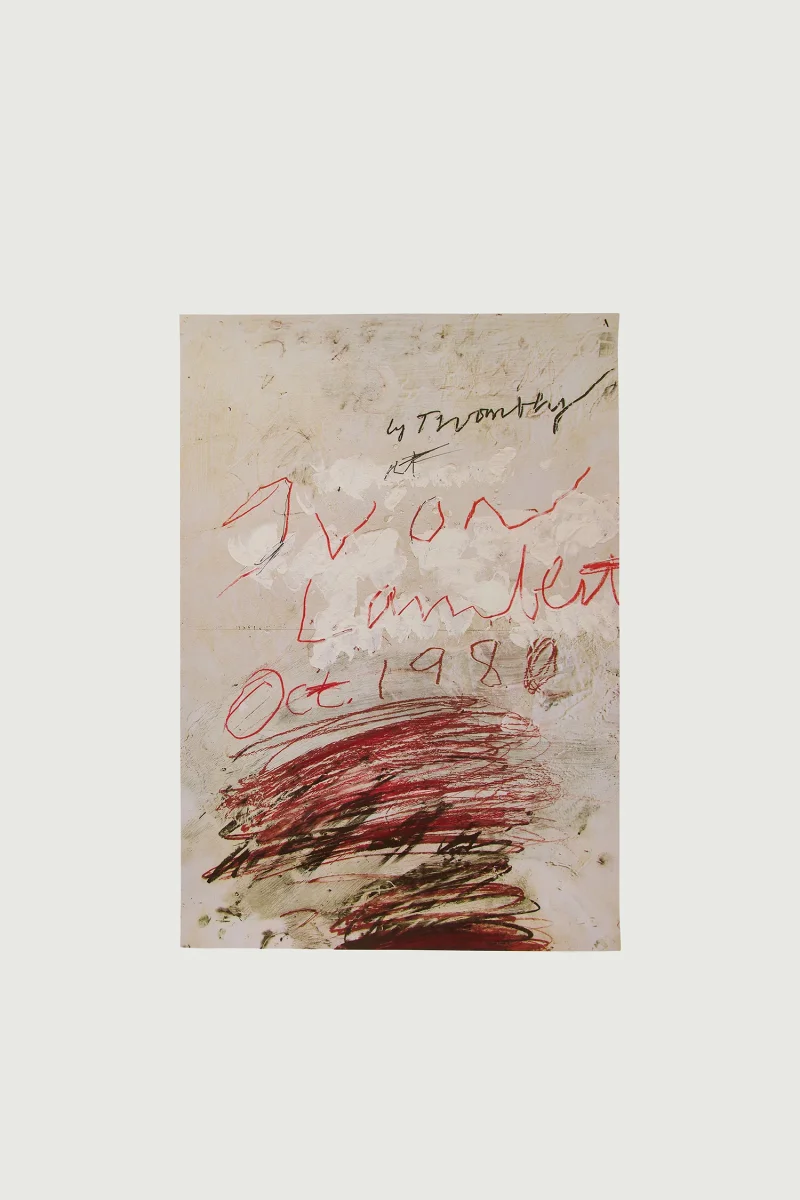 by Twombly
at
Yvon
Lambert
Oct. 1980